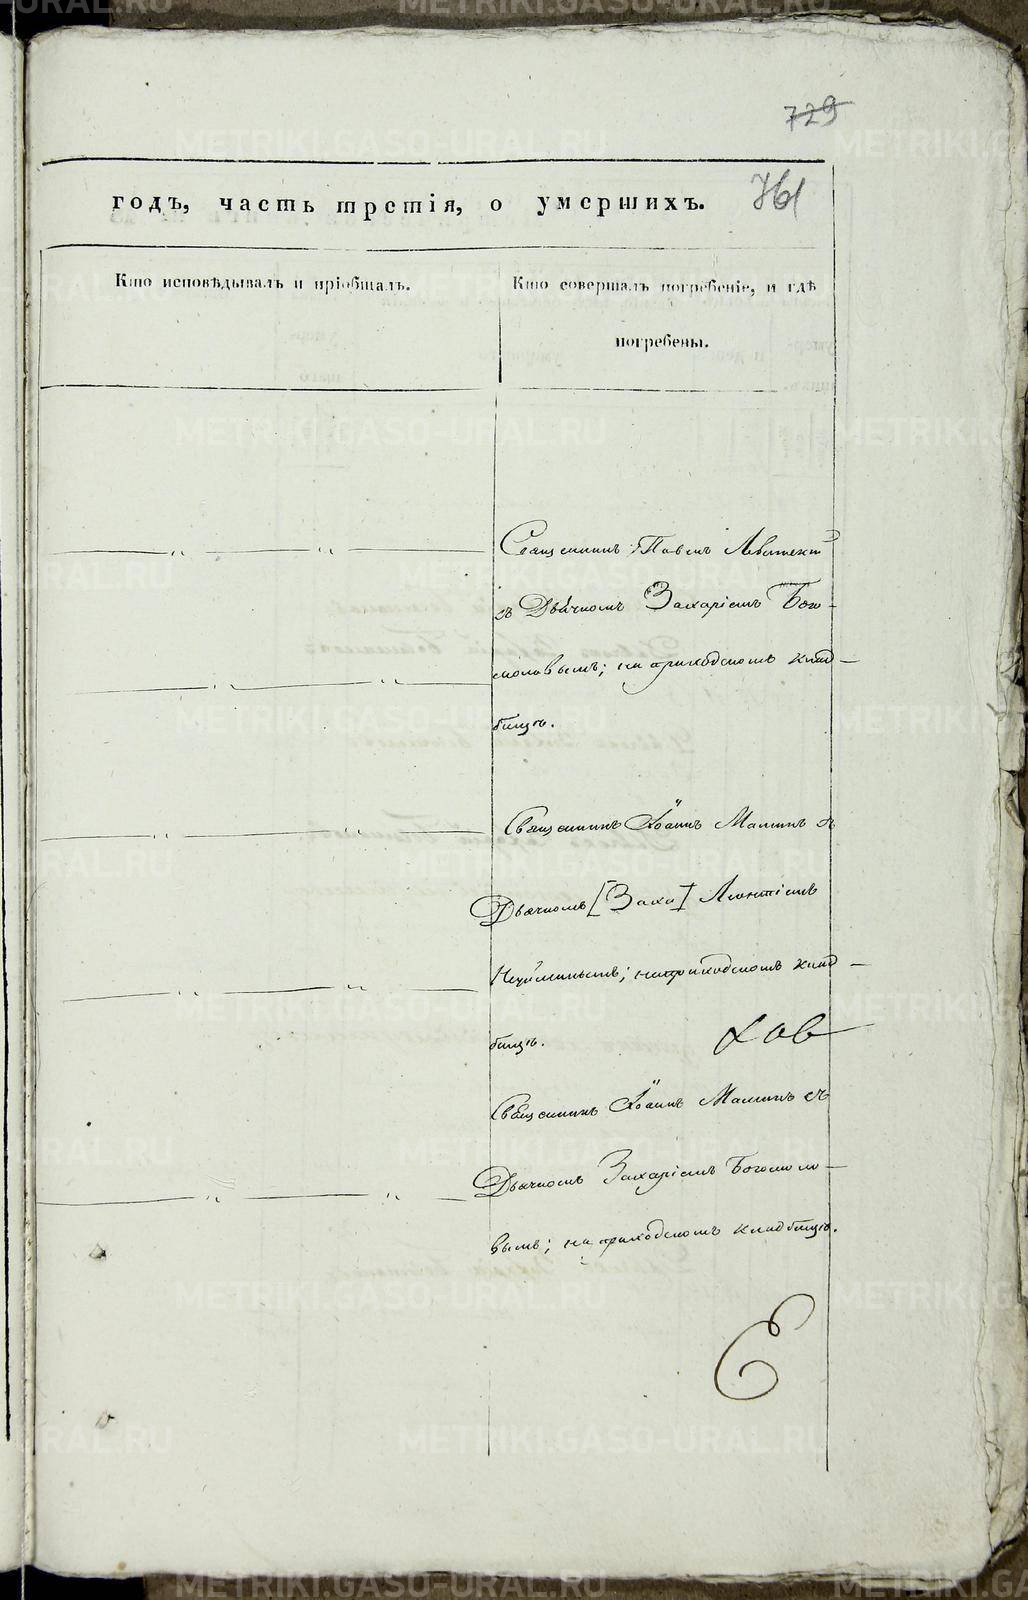 729
761
годъ, часть третія, о умершихъ.
Кто исповѣдывалъ и пріобщалъ.
Кто совершалъ погребеніе, и гдѣ
погребены.
Священникъ Павелъ
съ Дьячкомъ Захаріемъ Бого-
моловымъ; на приходскомъ клад-
бищѣ.
Священникъ Іоаннъ Маминъ съ
Дьячкомъ [Заха] Леонтіемъ
на приходскомъ клад-
бищѣ.
Священникъ Іоаннъ Маминъ съ
Дьячкомъ Захаріемъ Богомоло-
вымъ; на приходскомъ кладбищѣ.
METRIKI.GASO-URAL.RU